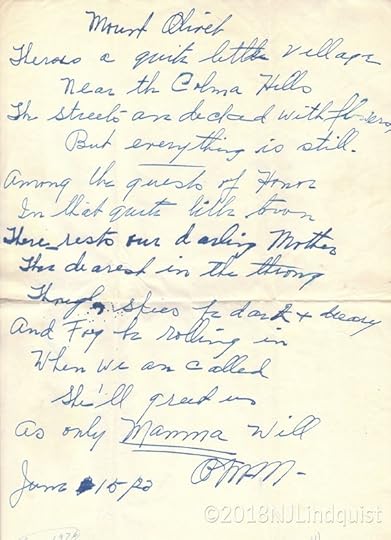 Mount Olivet
Theres a quite little village
Near the Colma Hills
The streets are decked with flowers
But everything is still.
Among the guests of Honor
In that quite little town
There rests our darling Mother
The dearest in the throng
Though skies be dark & dreary
And Fog be rolling in
When we are called
She'll greet us
As only Mamma Will
June 15
©2018NJLindquist